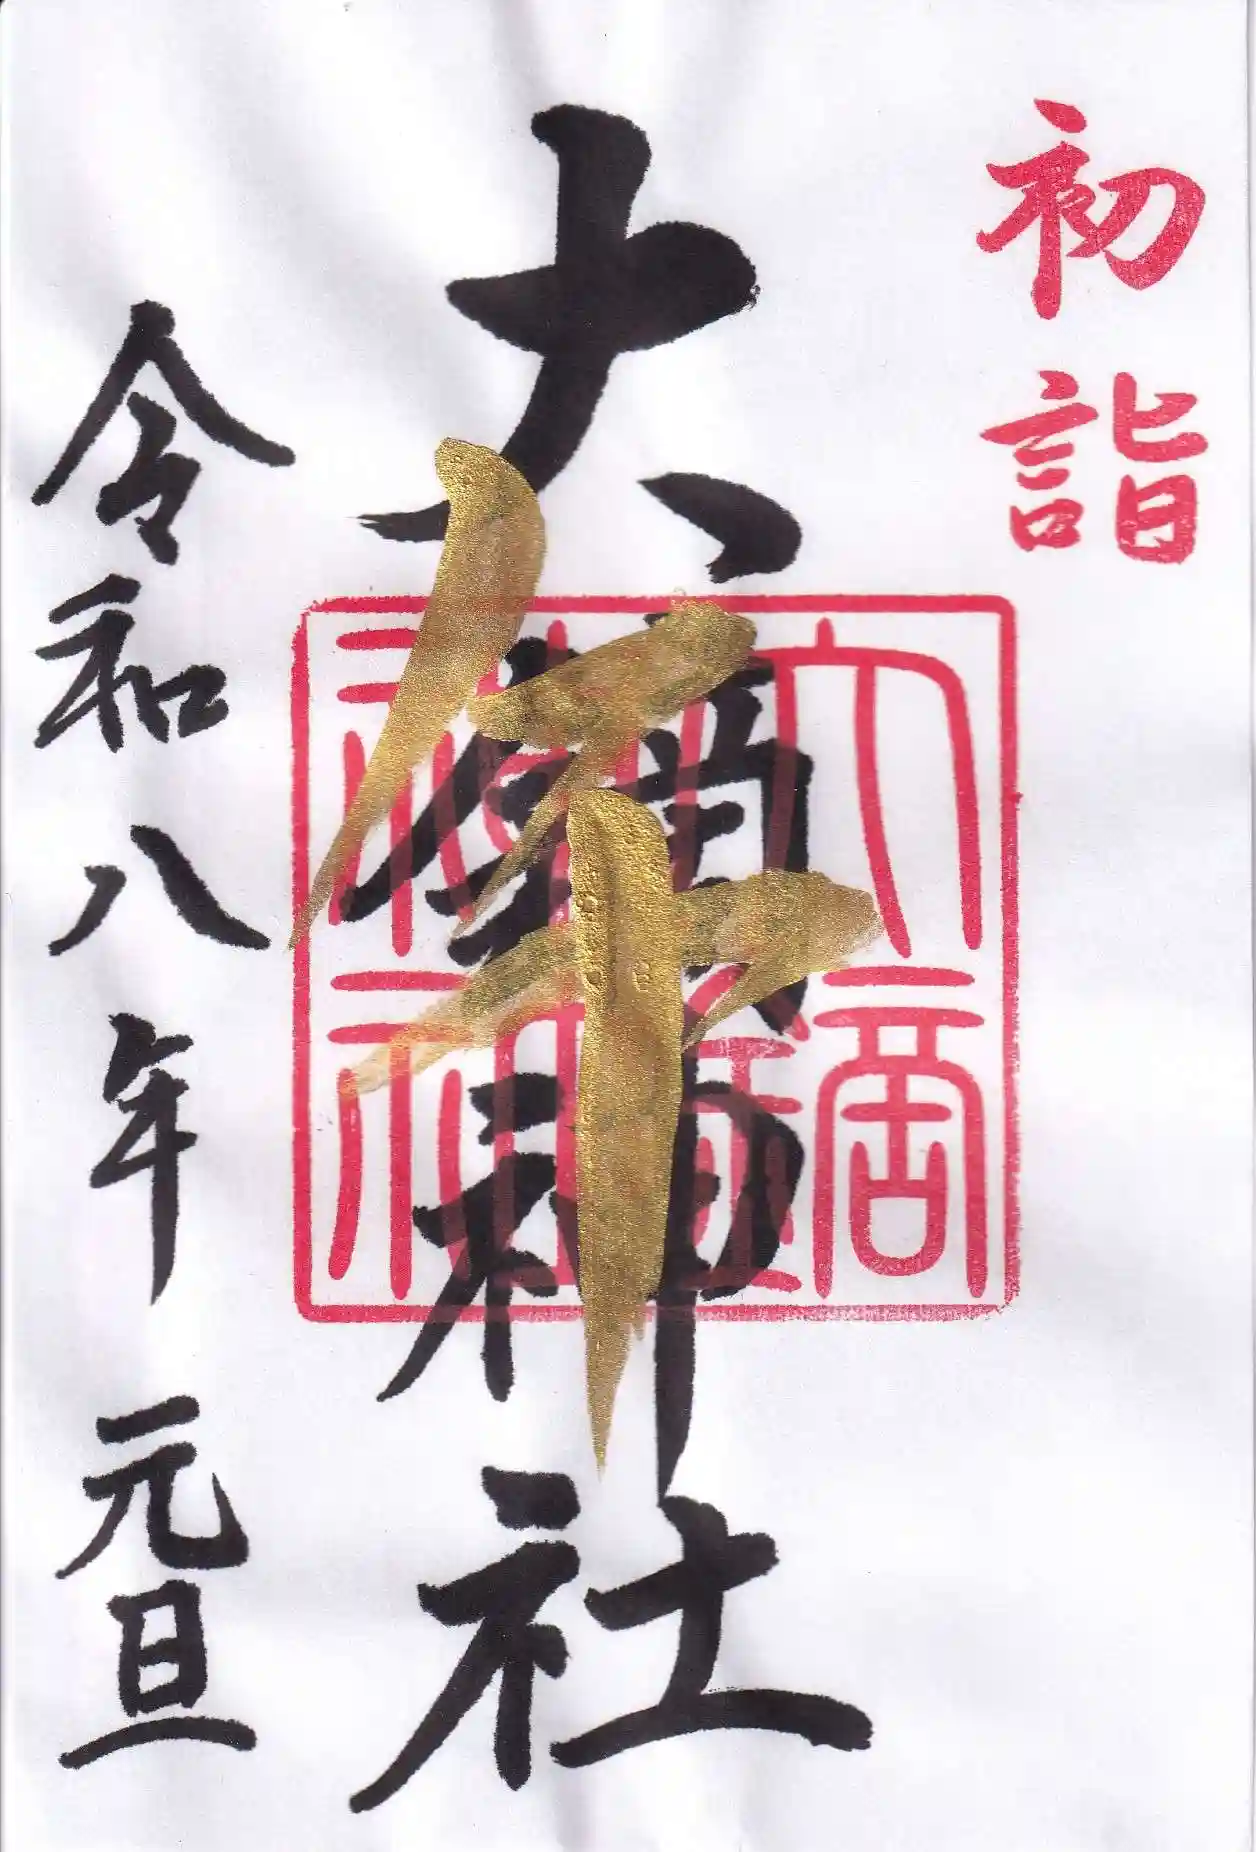 初詣
大鏑神社
大鏑神社
午
令和八年 元旦